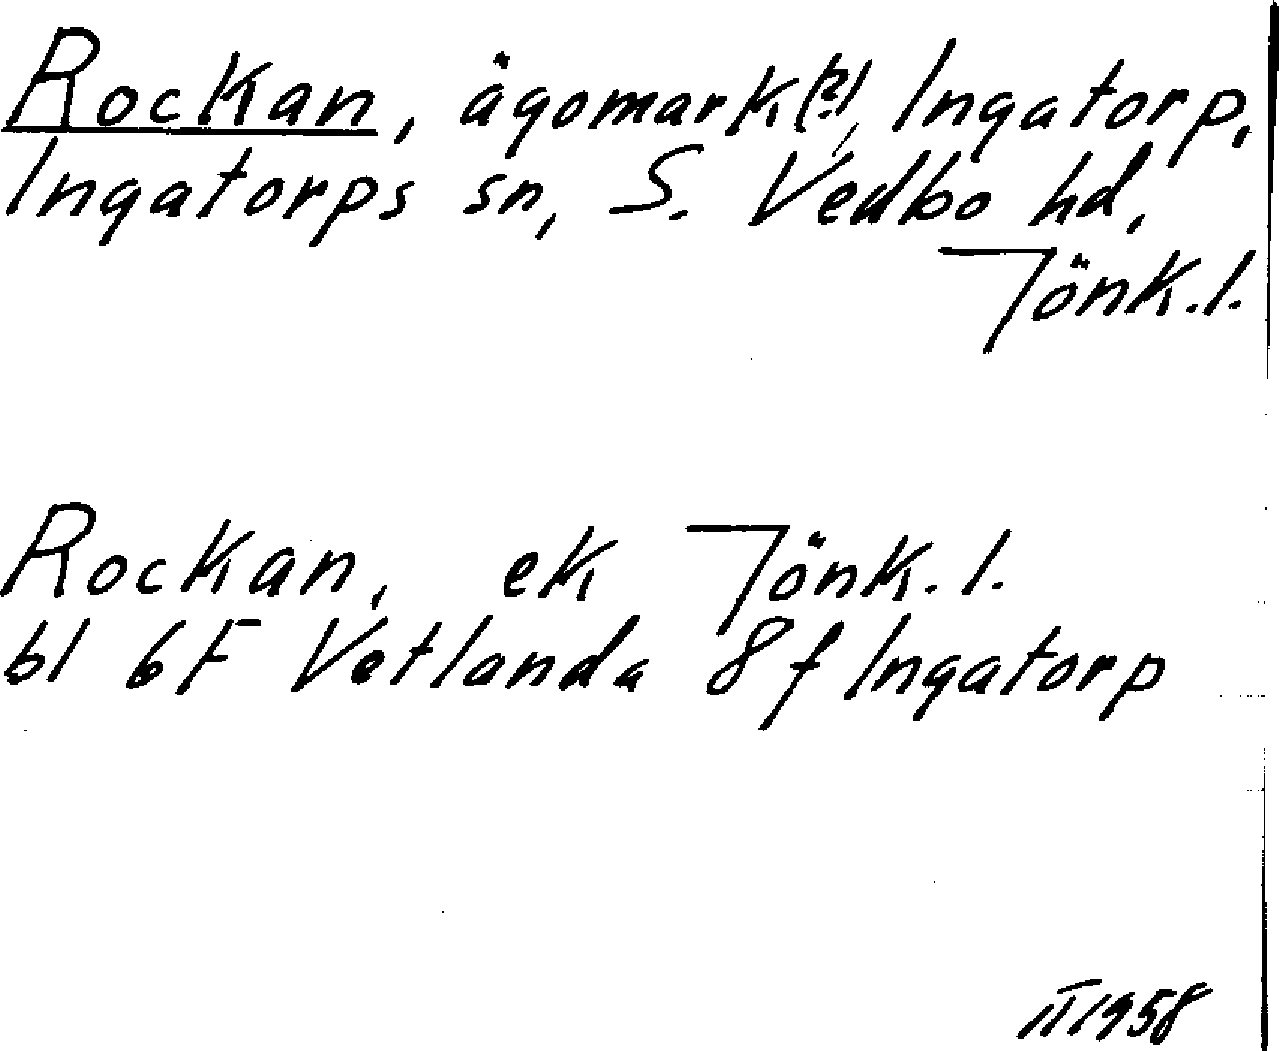 Rockan, ägomark(?), Ingatorp,
Ingatorps sn, S. Vedbo hd,
Jönk.l.
Rockan, ek Jönk.l.
bl 6F Vetlanda 8f Ingatorp
1958